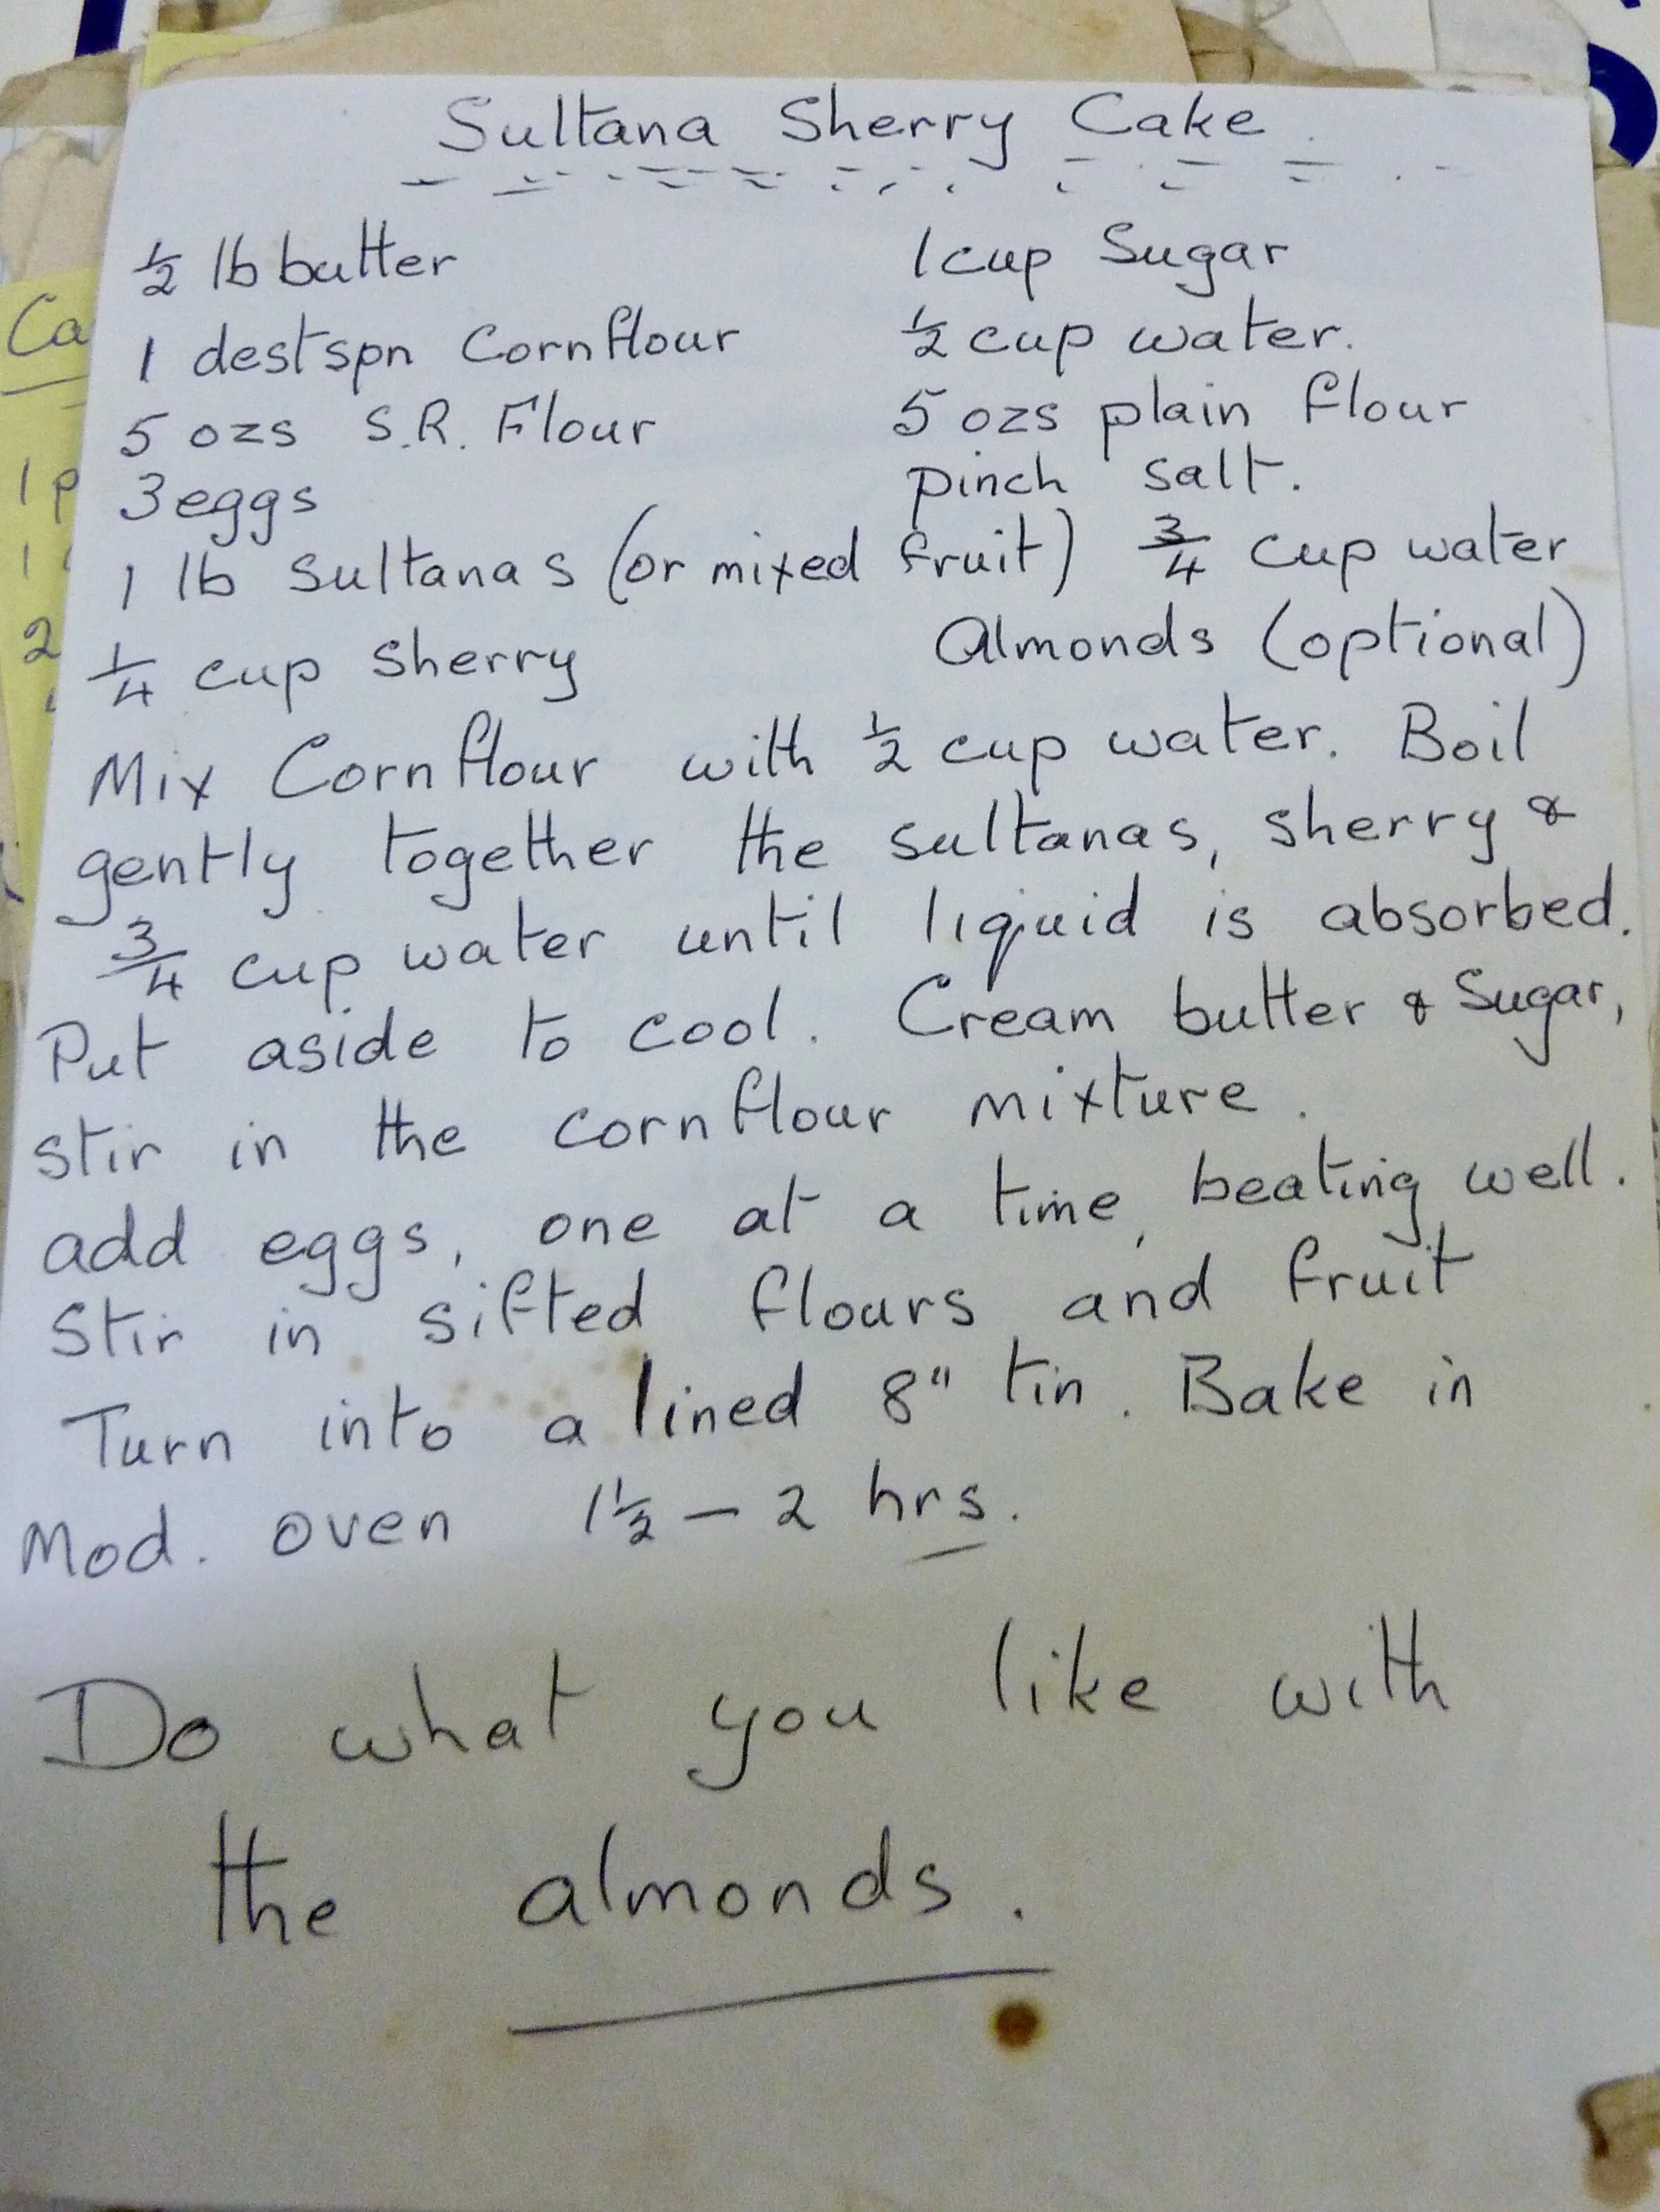 Sultana Sherry Cake
½ lb butter 1 cup Sugar
1 destspn Cornflour ½ cup water.
5 ozs S.R. Flour 5 ozs plain flour
3 eggs pinch salt.
1 lb sultanas (or mixed fruit) ¾ cup water
¼ cup sherry Almonds (optional)
Mix Cornflour with ½ cup water. Boil
gently together the sultanas, sherry &
¾ cup water until liquid is absorbed.
Put aside to cool. Cream butter & Sugar,
stir in the cornflour mixture.
add eggs, one at a time, beating well.
Stir in sifted flours and fruit
Turn into a lined 8" tin. Bake in
Mod. oven 1½ – 2 hrs.
Do what you like with
the almonds.
Ca
1 p
1
2